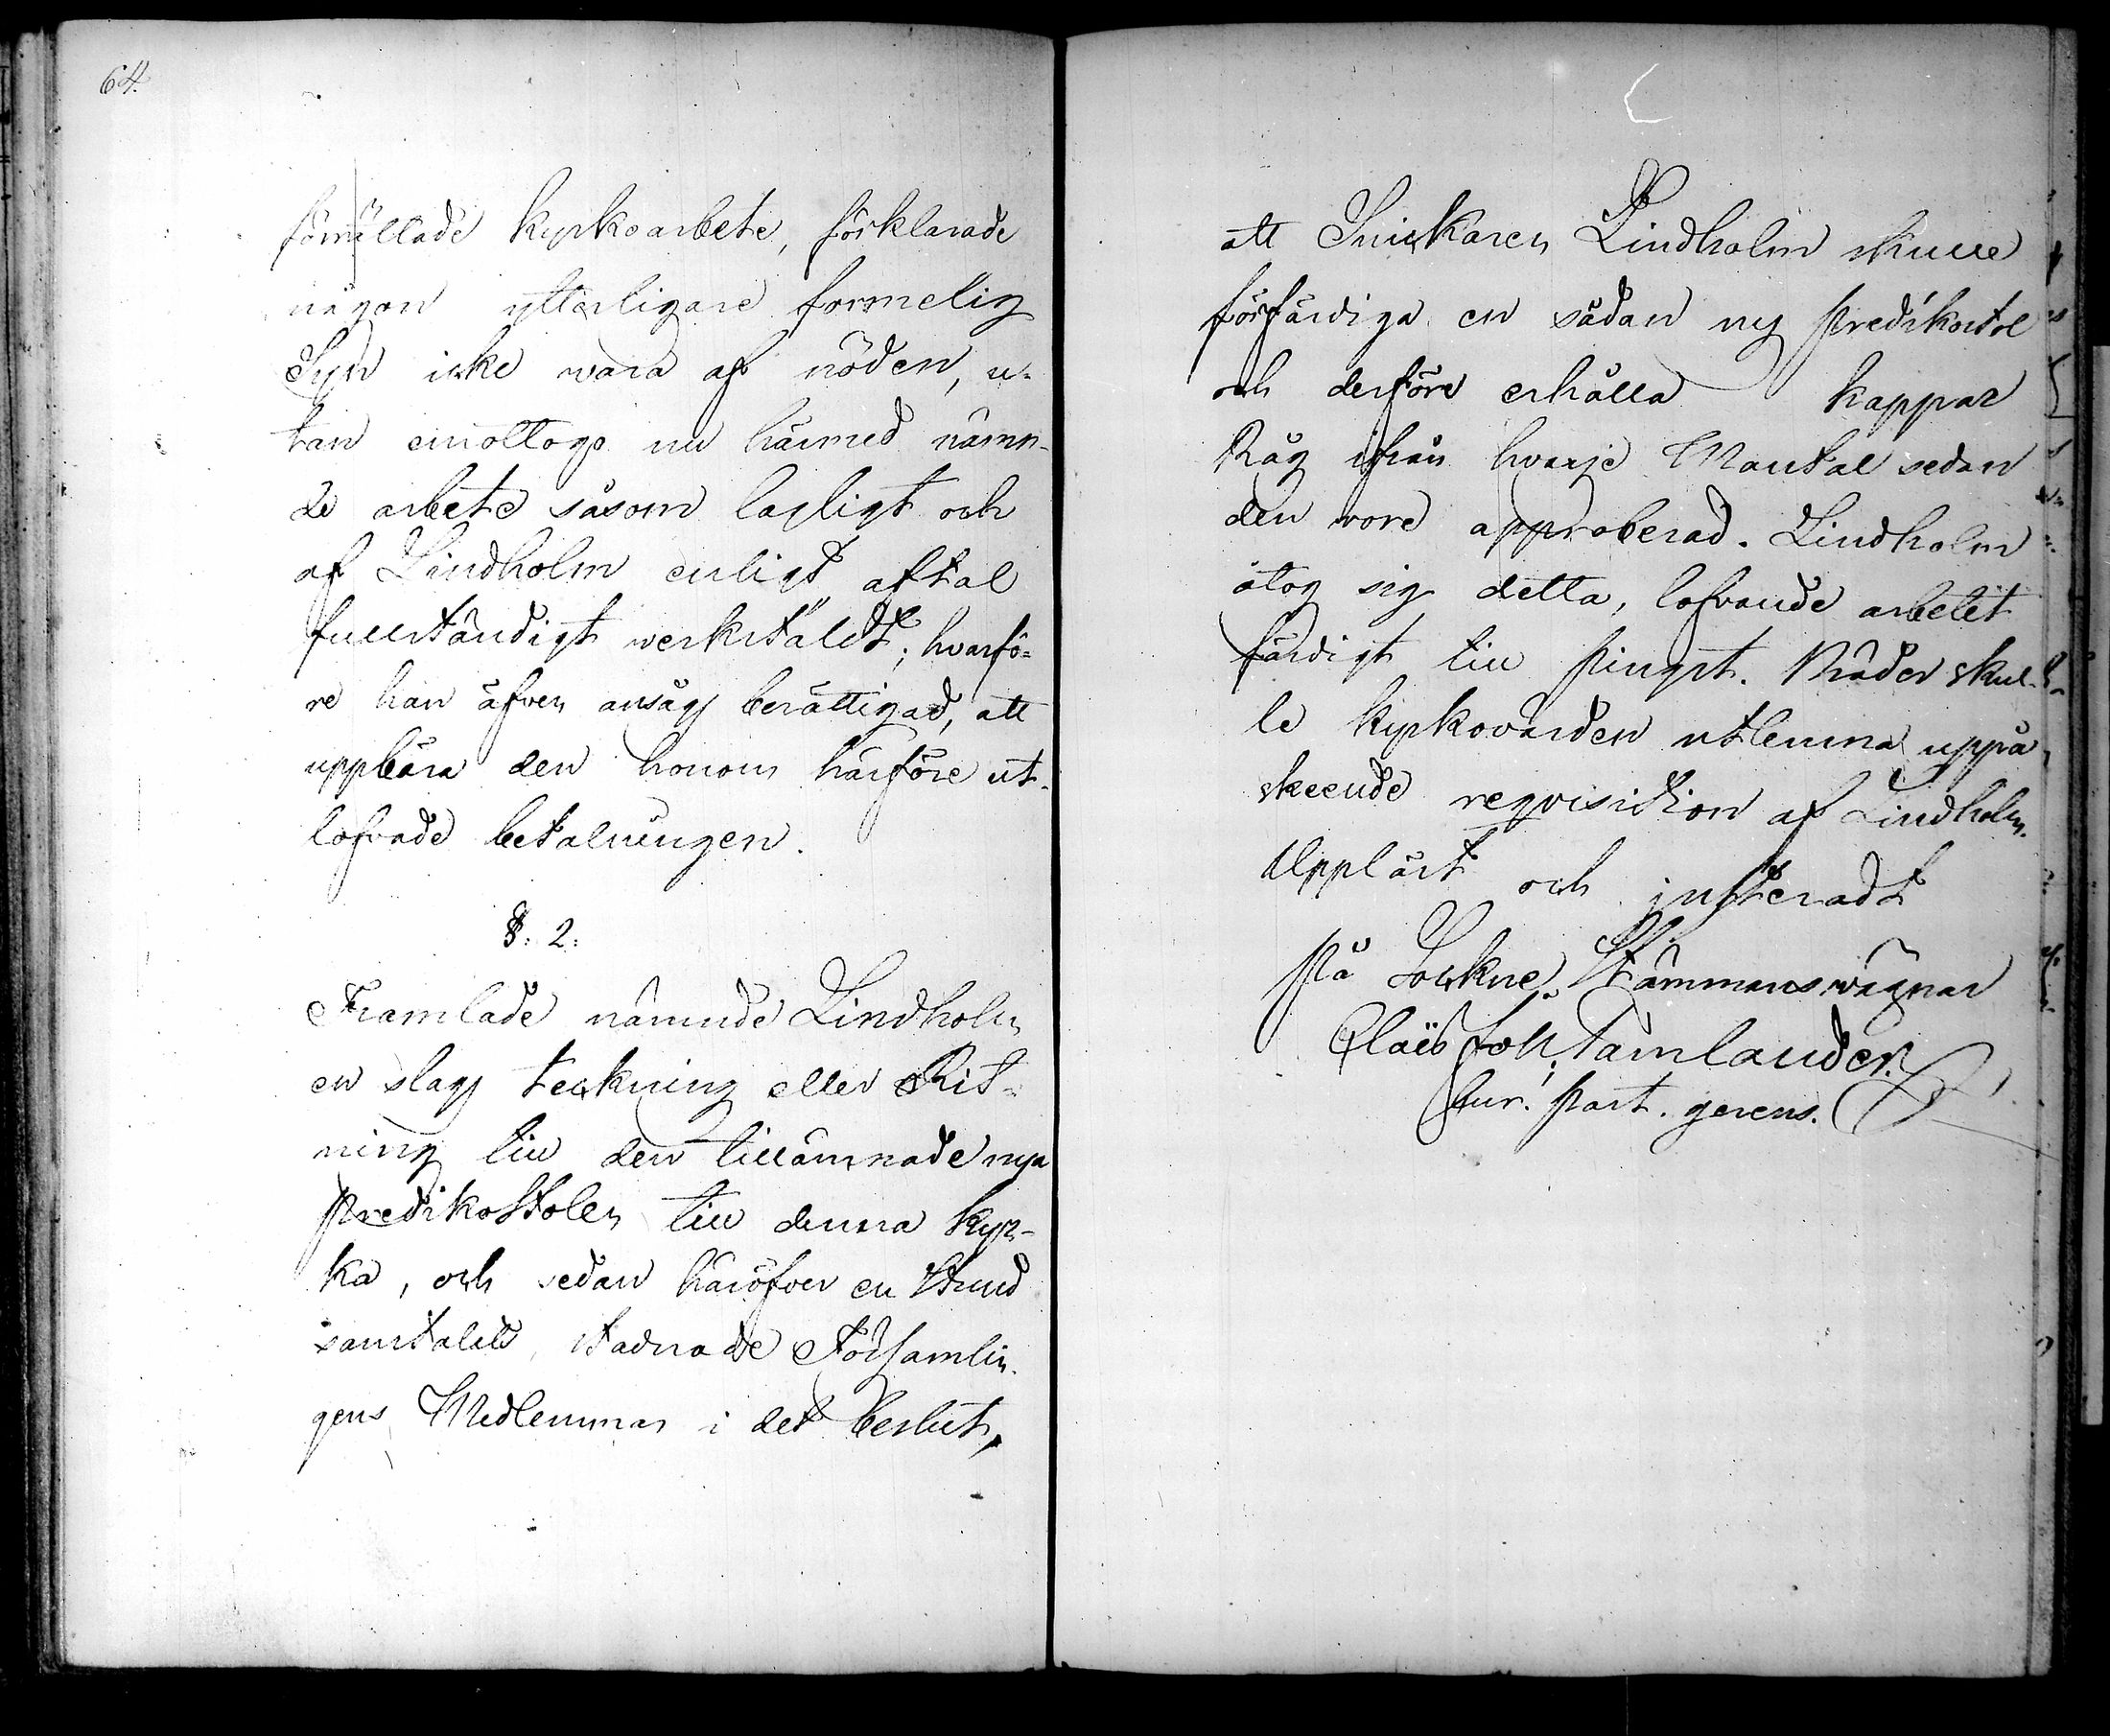 64.
förmällade kyrkoarbete, förklarade
någon ytterligare formelig
Syn icke wara af nöden, u-
tan emottogs nu härmed nämn-
de arbete såsom lagligt och
af Lindholm enligt aftal
fullständigt werkstäldt; hvarfö-
re han äfven ansågs berättigad, att
uppbära den honom härföre ut-
lofvade betalningen.
§: 2:
Framlade nämnde Lindholm
en slags teckning eller Rit-
ning till den tillämnade nya
predikostolen till denna kyr-
ka, och sedan häröfver en stund
samtalats, stadnade Församlin-
gens Medlemmar i det beslut,
att Snickaren Lindholm skulle
förfärdiga en sådan ny predikostol
och derföre erhålla kappar
Råg ifrån hvarje Mantal sedan
den vore approberad. Lindholm
åtog sig detta, lofvande arbetet
färdigt till pingst. Bräder skul-
le kyrkovärden utlemna uppå
skeende reqvisition af Lindholm.
Uppläst och justeradt
på Sockne Stämmans wägnar
Claës Joh: Tämlander.
Cur. past. gerens.